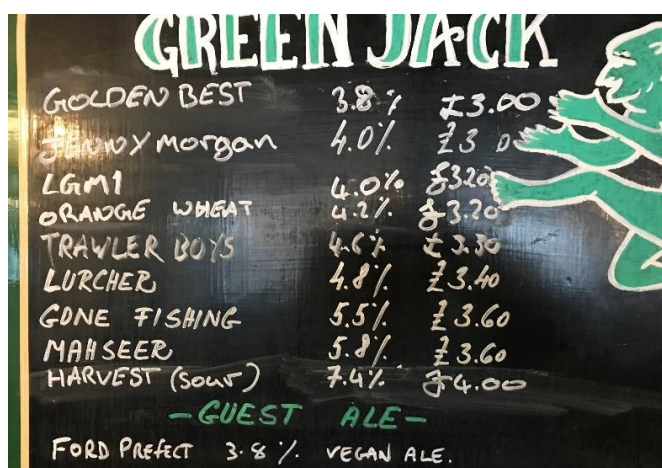 GREEN JACK
GOLDEN BEST 3.8% £3.00
JENNY morgan 4.0% £3 0
LGM1 4.0% £3.20
ORANGE WHEAT 4.2% £3.20
TRAWLER BOYS 4.6% £3.30
LURCHER 4.8% £3.40
GONE FISHING 5.5% £3.60
MAHSEER 5.8% £3.60
HARVEST (sour) 7.4% £4.00
- GUEST ALE -
FORD PREFECT 3.8% VEGAN ALE.